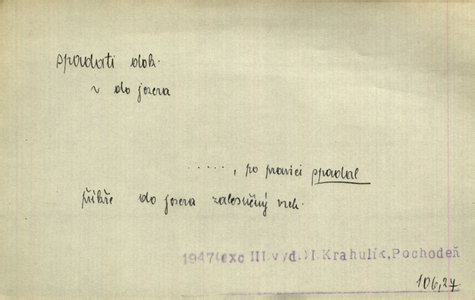 spadati dok.
~ do jezera
....., po pravici spadal
příkře do jezera zalesněný vrch.
1947(exc III.vyd.)I.Krahulík,Pochodeň
106,27